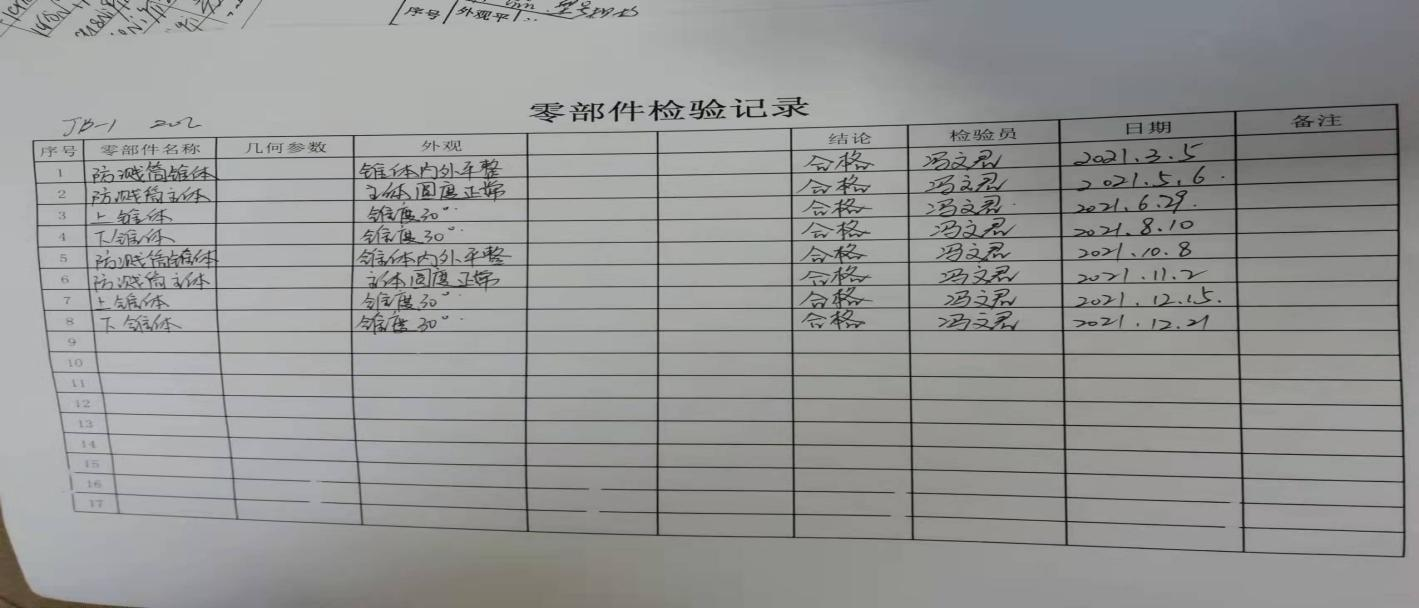 序号 外观平
零部件检验记录
JB-1 202
序号 零部件名称 几何参数 外观 结论 检验员 日期 备注
1 防溅筒锥体 锥体内外平整 合格 冯文君 2021.3.5
2 防溅筒主体 主体圆度正常 合格 冯文君 2021.5.6.
3 上锥体 锥度30° 合格 冯文君 2021.6.29.
4 下锥体 锥度30° 合格 冯文君 2021.8.10
5 防溅筒锥体 锥体内外平整 合格 冯文君 2021.10.8
6 防溅筒主体 主体圆度正常 合格 冯文君 2021.11.2
7 上锥体 锥度30° 合格 冯文君 2021.12.15.
8 下锥体 锥度30° 合格 冯文君 2021.12.21
9
10
11
12
13
14
15
16
17